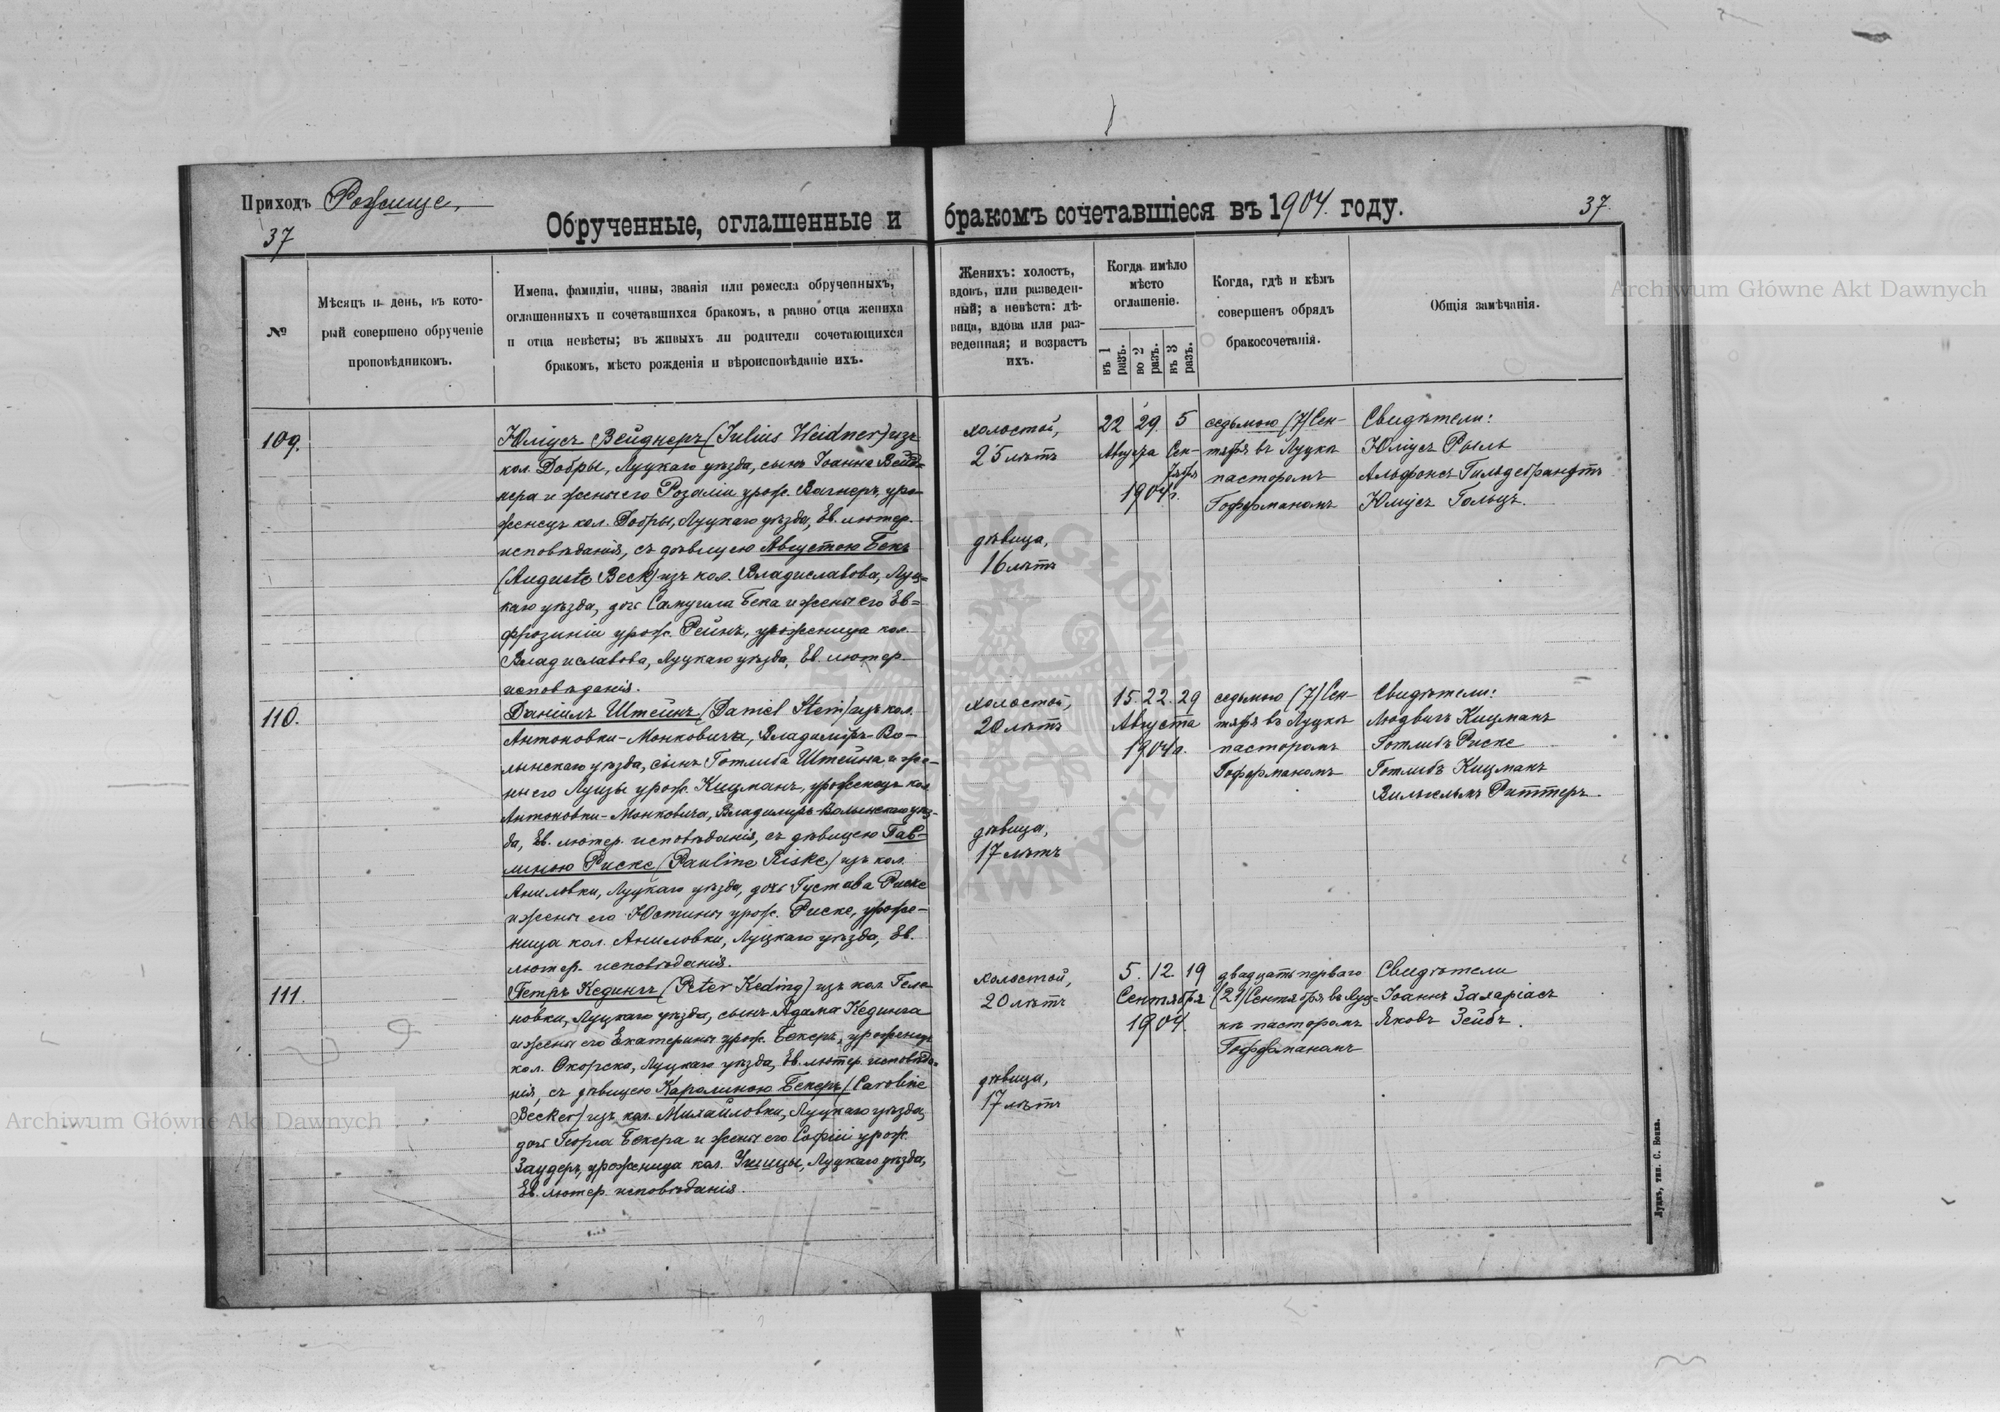 Приходъ Рожище.
37
Обрученные, оглашенные и бракомъ сочетавшіеся въ 1904. году.
37.
№
Мѣсяцъ и день, въ кото-
рый совершено обрученіе
проповѣдникомъ.
Имена, фамиліи, чины, званія или ремесла обрученныхъ,
оглашенныхъ и сочетавшихся бракомъ, а равно отца жениха
и отца невѣсты; въ живыхъ ли родители сочетающихся
бракомъ, мѣсто рожденія и вѣроисповѣданіе ихъ.
Женихъ: холостъ,
вдовъ, или разведен-
ный; а невѣста: дѣ-
вица, вдова или раз-
веденная; и возрастъ
ихъ.
Когда имѣло
мѣсто
оглашеніе.
въ 1 разъ.
во 2 разъ.
въ 3 разъ.
Когда, гдѣ и кѣмъ
совершенъ обрядъ
бракосочетанія.
Общія замѣчанія.
109.
Юліусъ Вейднеръ (Julius Weidner) изъ
кол. Добры, Луцкаго уѣзда, сынъ Іоанна Вейд-
нера и жены его Розаліи урож. Вагнеръ, уро-
женецъ кол. Добры, Луцкаго уѣзда, Ев. лютер.
исповѣданія, съ дѣвицею Августою Бекъ
(Auguste Beck) изъ кол. Владиславова, Луц-
каго уѣзда, дочь Самуила Бека и жены его Ев-
фрозиніи урож. Рейнъ, уроженица кол.
Владиславова, Луцкаго уѣзда, Ев. лютер.
исповѣданія.
холостой,
25 лѣтъ
дѣвица,
16 лѣтъ
22 29. 5
Августа Сен-
тября
1904 г.
седьмого (7) Сен-
тября въ Луцкѣ
пасторомъ
Гофманомъ
Свидѣтели:
Юліусъ Рыль
Альфонсъ Гильдебрандтъ
Юліусъ Гольцъ.
110.
Даніилъ Штейнъ (Daniel Stein) изъ кол.
Антоновки-Монковича, Владиміръ-Во-
лынскаго уѣзда, сынъ Готлиба Штейна и же-
ны его Луизы урож. Кицманъ, уроженецъ кол.
Антоновки-Монковича, Владиміръ-Волынскаго уѣз-
да, Ев. лютер. исповѣданія, съ дѣвицею Пав-
линою Риске (Pauline Riske) изъ кол.
Аниловки, Луцкаго уѣзда, дочь Густава Риске
и жены его Юстины урож. Риске, уроже-
ница кол. Аниловки, Луцкаго уѣзда, Ев.
лютер. исповѣданія.
холостой,
20 лѣтъ
дѣвица,
17 лѣтъ
15. 22. 29
Августа
1904 г.
седьмого (7) Сен-
тября въ Луцкѣ
пасторомъ
Гофманомъ
Свидѣтели:
Людвигъ Кицманъ
Готлибъ Риске
Готлибъ Кицманъ
Вильгельмъ Риттеръ.
111.
Петръ Кедингъ (Peter Keding) изъ кол. Геле-
новки, Луцкаго уѣзда, сынъ Адама Кединга
и жены его Екатерины урож. Бекеръ, уроженецъ
кол. Окорска, Луцкаго уѣзда, Ев. лютер. исповѣда-
нія, съ дѣвицею Каролиною Бекеръ (Caroline
Becker) изъ кол. Михайловки, Луцкаго уѣзда,
дочь Георга Бекера и жены его Софіи урож.
Заудеръ, уроженица кол. Ушицы, Луцкаго уѣзда,
Ев. лютер. исповѣданія.
холостой,
20 лѣтъ
дѣвица,
17 лѣтъ
5. 12. 19
Сентября
1904.
двадцать перваго
(21) Сентября въ Луц-
кѣ пасторомъ
Гофманомъ
Свидѣтели
Іоаннъ Захаріасъ
Яковъ Зейбъ.
Луцкъ, тип. С. Бонка.
Archiwum Główne Akt Dawnych
Archiwum Główne Akt Dawnych